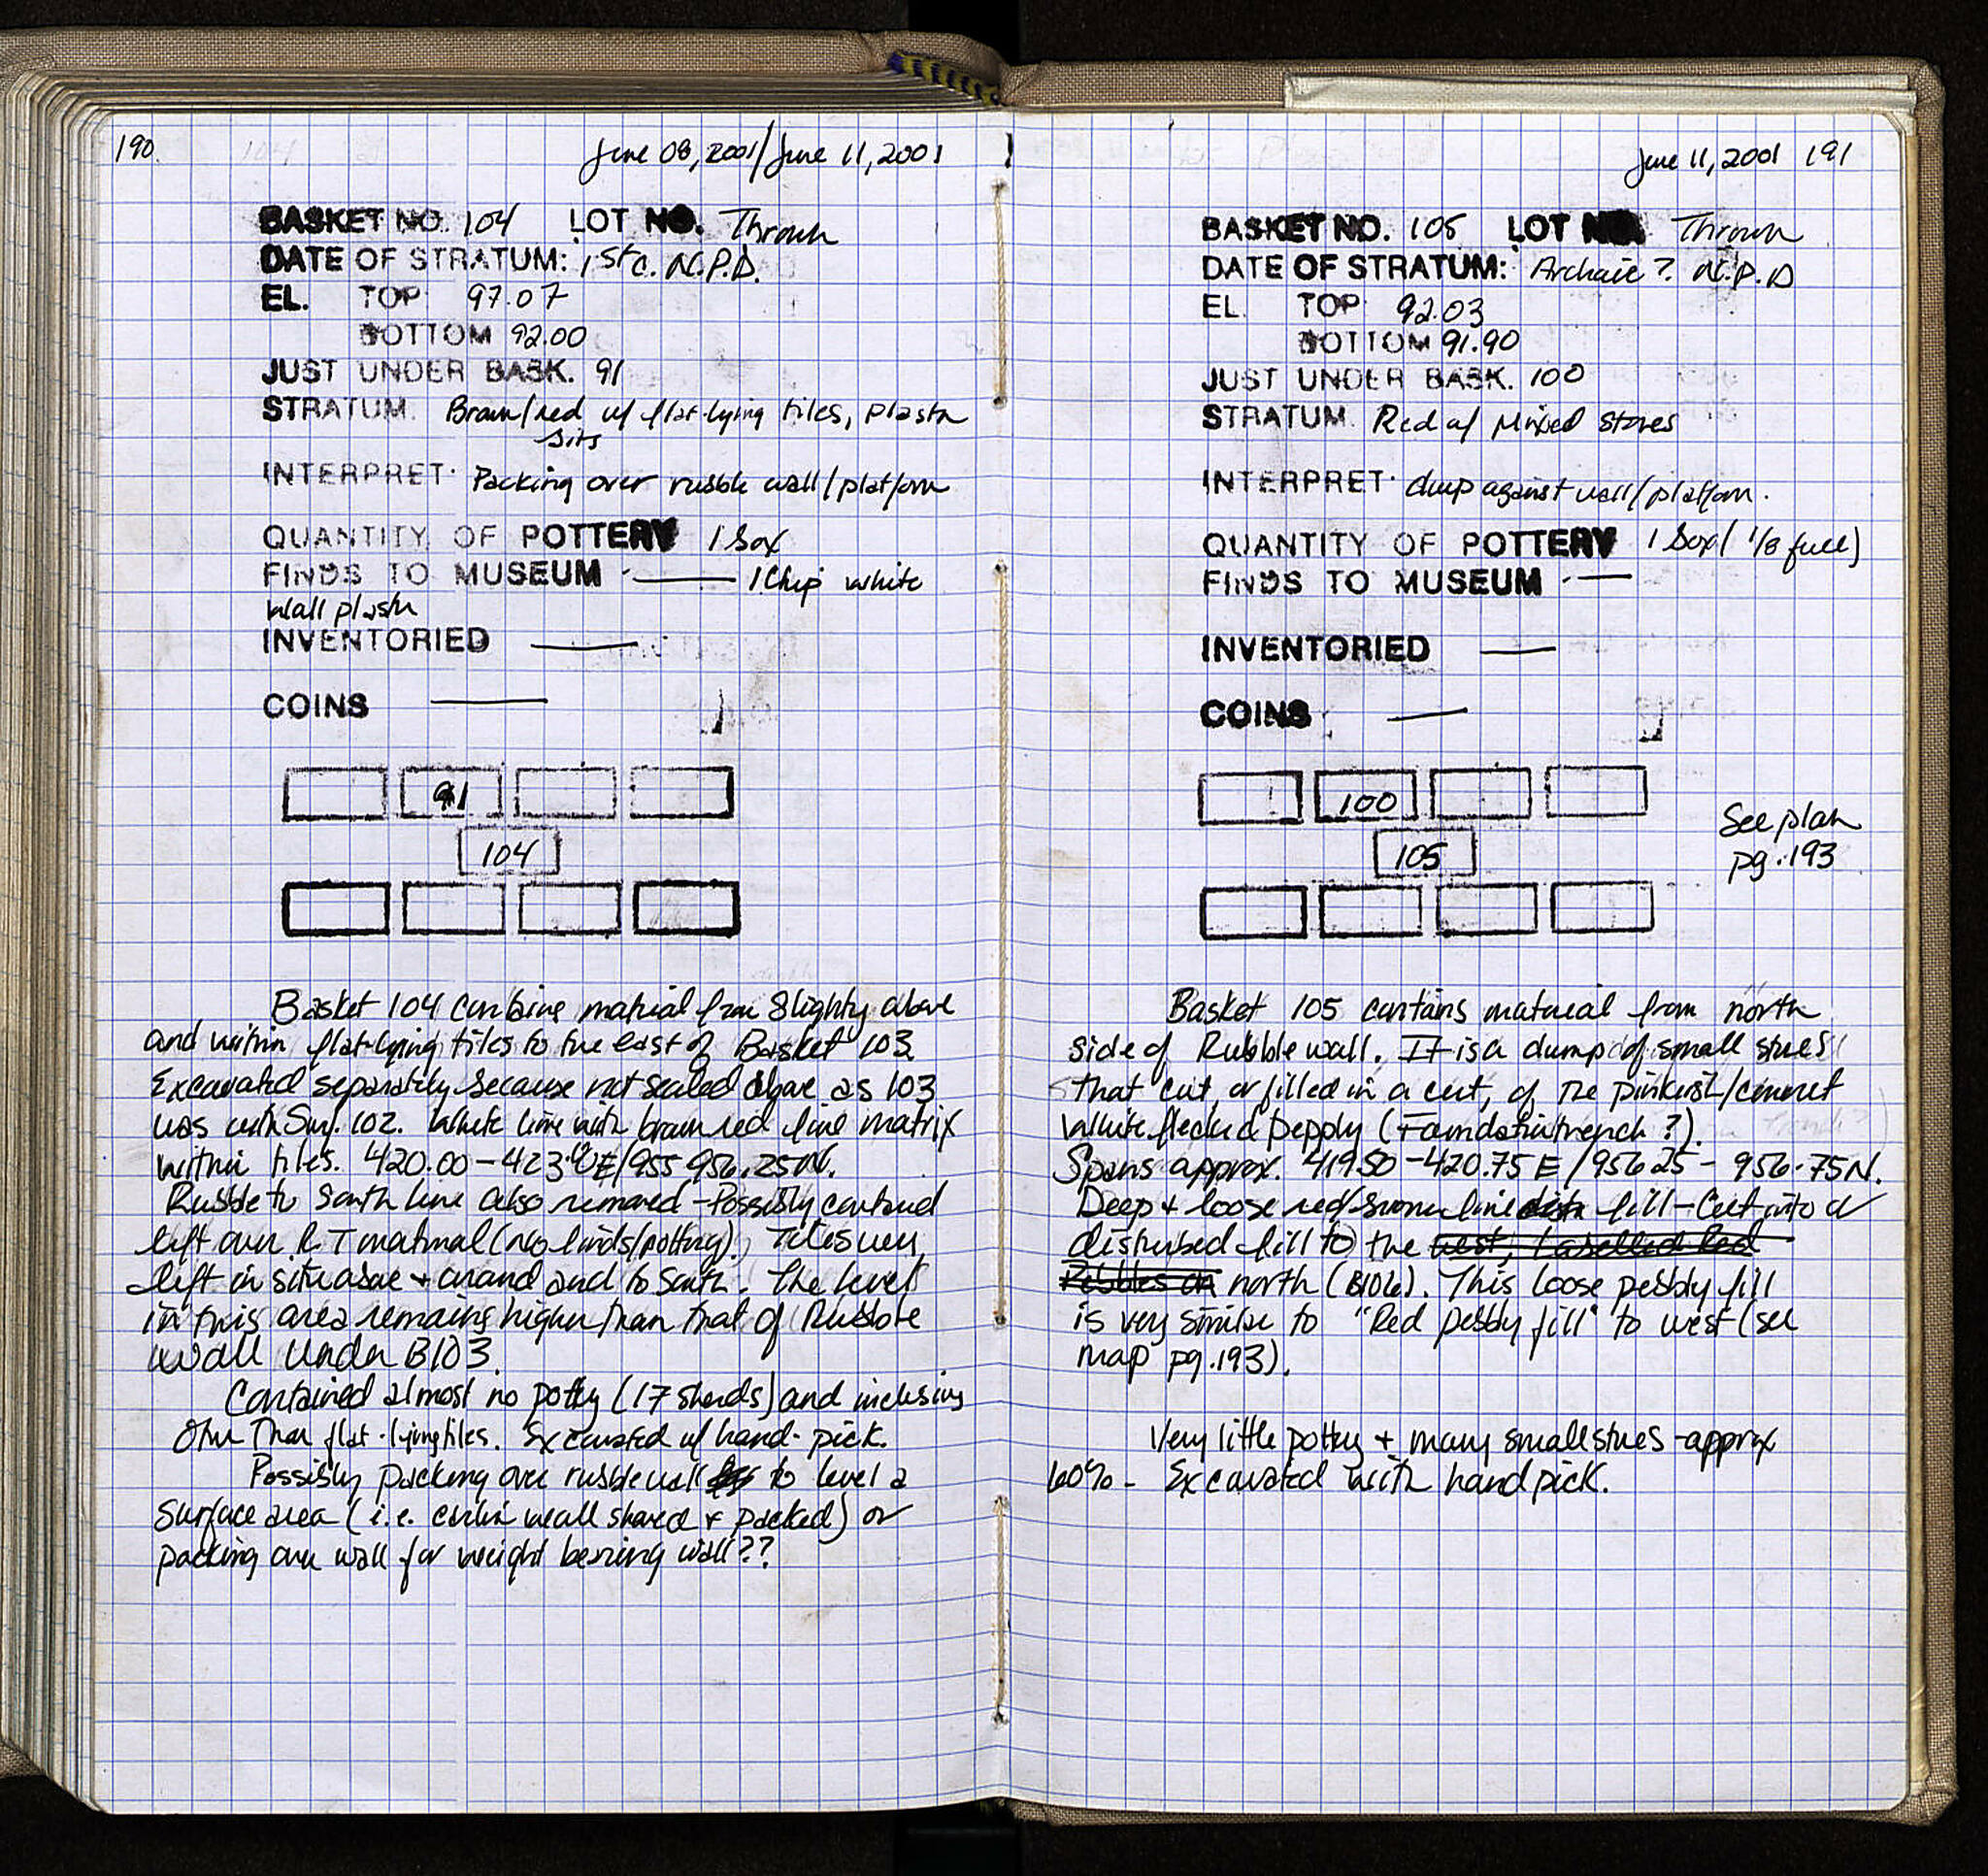 190.
June 08, 2001/June 11, 2001
BASKET NO. 104 LOT NO. Thrown
DATE OF STRATUM: 1st c. N.P.D.
EL. TOP 97.07
BOTTOM 92.00
JUST UNDER BASK. 91
STRATUM Brown/red w/ flat-lying tiles, plaster
bits
INTERPRET. Packing over rubble wall/platform
QUANTITY OF POTTERY 1 box
FINDS TO MUSEUM — 1 Chip white
wall plaster
INVENTORIED —
COINS —
91
104
Basket 104 contains material from slighty above
and within flat-lying tiles to the east of Basket 103.
Excavated separately because not sealed above as 103
was with Surf. 102. White lime with brown red fine matrix
within tiles. 420.00-423.00E/955-956.25N.
Rubble to South line also removed - Possibly contained
left over R.T material (no finds/pottery). Tiles were
left in situ above + around and to South. The level
in this area remains higher than that of Rubble
wall under B103.
Contained almost no pottery (17 sherds) and inclusions
other than flat-lying tiles. Excavated w/ hand-pick.
Possibly packing over rubble wall to level a
surface area (i.e. earlier wall shaved + packed) or
packing over wall for weight bearing wall??
June 11, 2001 191
BASKET NO. 105 LOT NO. Thrown
DATE OF STRATUM: Archaic? N.P.D
EL. TOP 92.03
BOTTOM 91.90
JUST UNDER BASK. 100
STRATUM Red w/ Mixed stones
INTERPRET. dump against wall/platform.
QUANTITY OF POTTERY 1 box (1/8 full)
FINDS TO MUSEUM —
INVENTORIED —
COINS —
100
105
See plan
pg. 193
Basket 105 contains material from north
side of Rubble wall. It is a dump of small stones
that cut, or filled in a cut, of the pinkish/cement
white flecked pepply (Foundation trench?).
Spans approx. 419.50-420.75 E/956.25-956.75N.
Deep + loose red/brown fine fill - Cut into a
disturbed fill to the west, labelled Red
Pebbles on north (B106). This loose pebbly fill
is very similar to "Red pebbly fill" to west (see
map pg. 193).
Very little pottery + many small stones - approx
60% - Excavated with handpick.